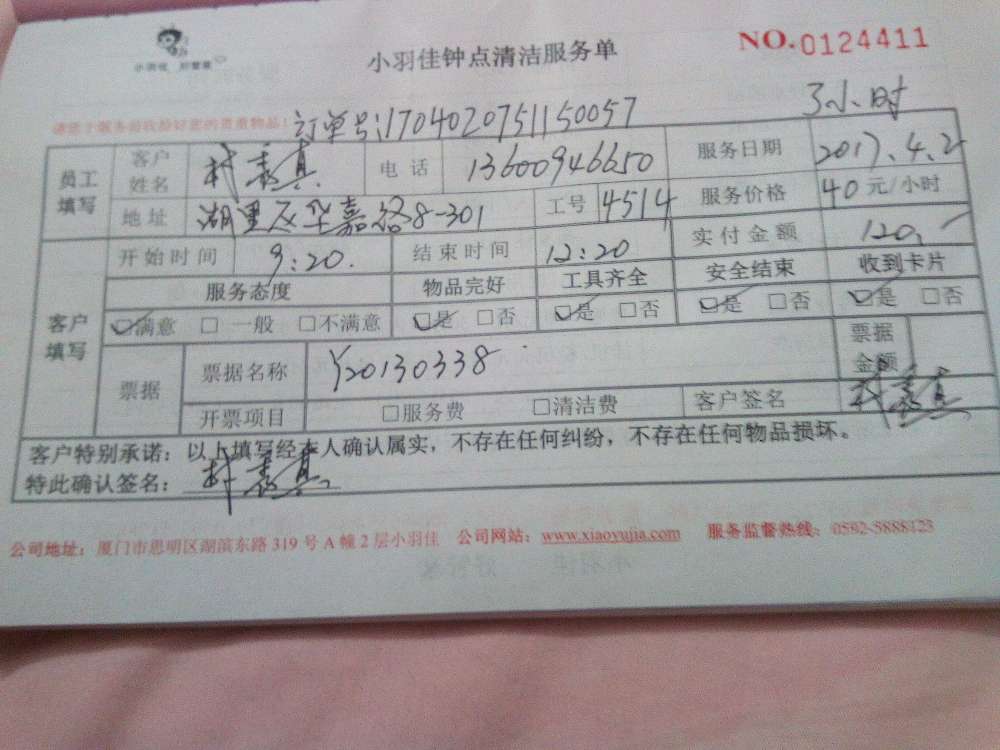 小羽佳钟点清洁服务单
NO.0124411
3小时
订单号:1704020751150057
员工填写 客户姓名 林 真 电话 13600946650 服务日期 2017.4.2
地址 湖里区华嘉路8-301 工号 4514 服务价格 40元/小时
客户填写 开始时间 9:20. 结束时间 12:20 实付金额 120.
服务态度 物品完好 工具齐全 安全结束 收到卡片
☑满意 □一般 □不满意 ☑是 □否 ☑是 □否 ☑是 □否 ☑是 □否
票据 票据名称 Y20130338 票据金额
开票项目 □服务费 □清洁费 客户签名 林 真
客户特别承诺：以上填写经本人确认属实，不存在任何纠纷，不存在任何物品损坏。
特此确认签名： 林 真
公司地址：厦门市思明区湖滨东路319号A幢2层小羽佳 公司网站：www.xiaoyujia.com 服务监督热线：0592-5888123